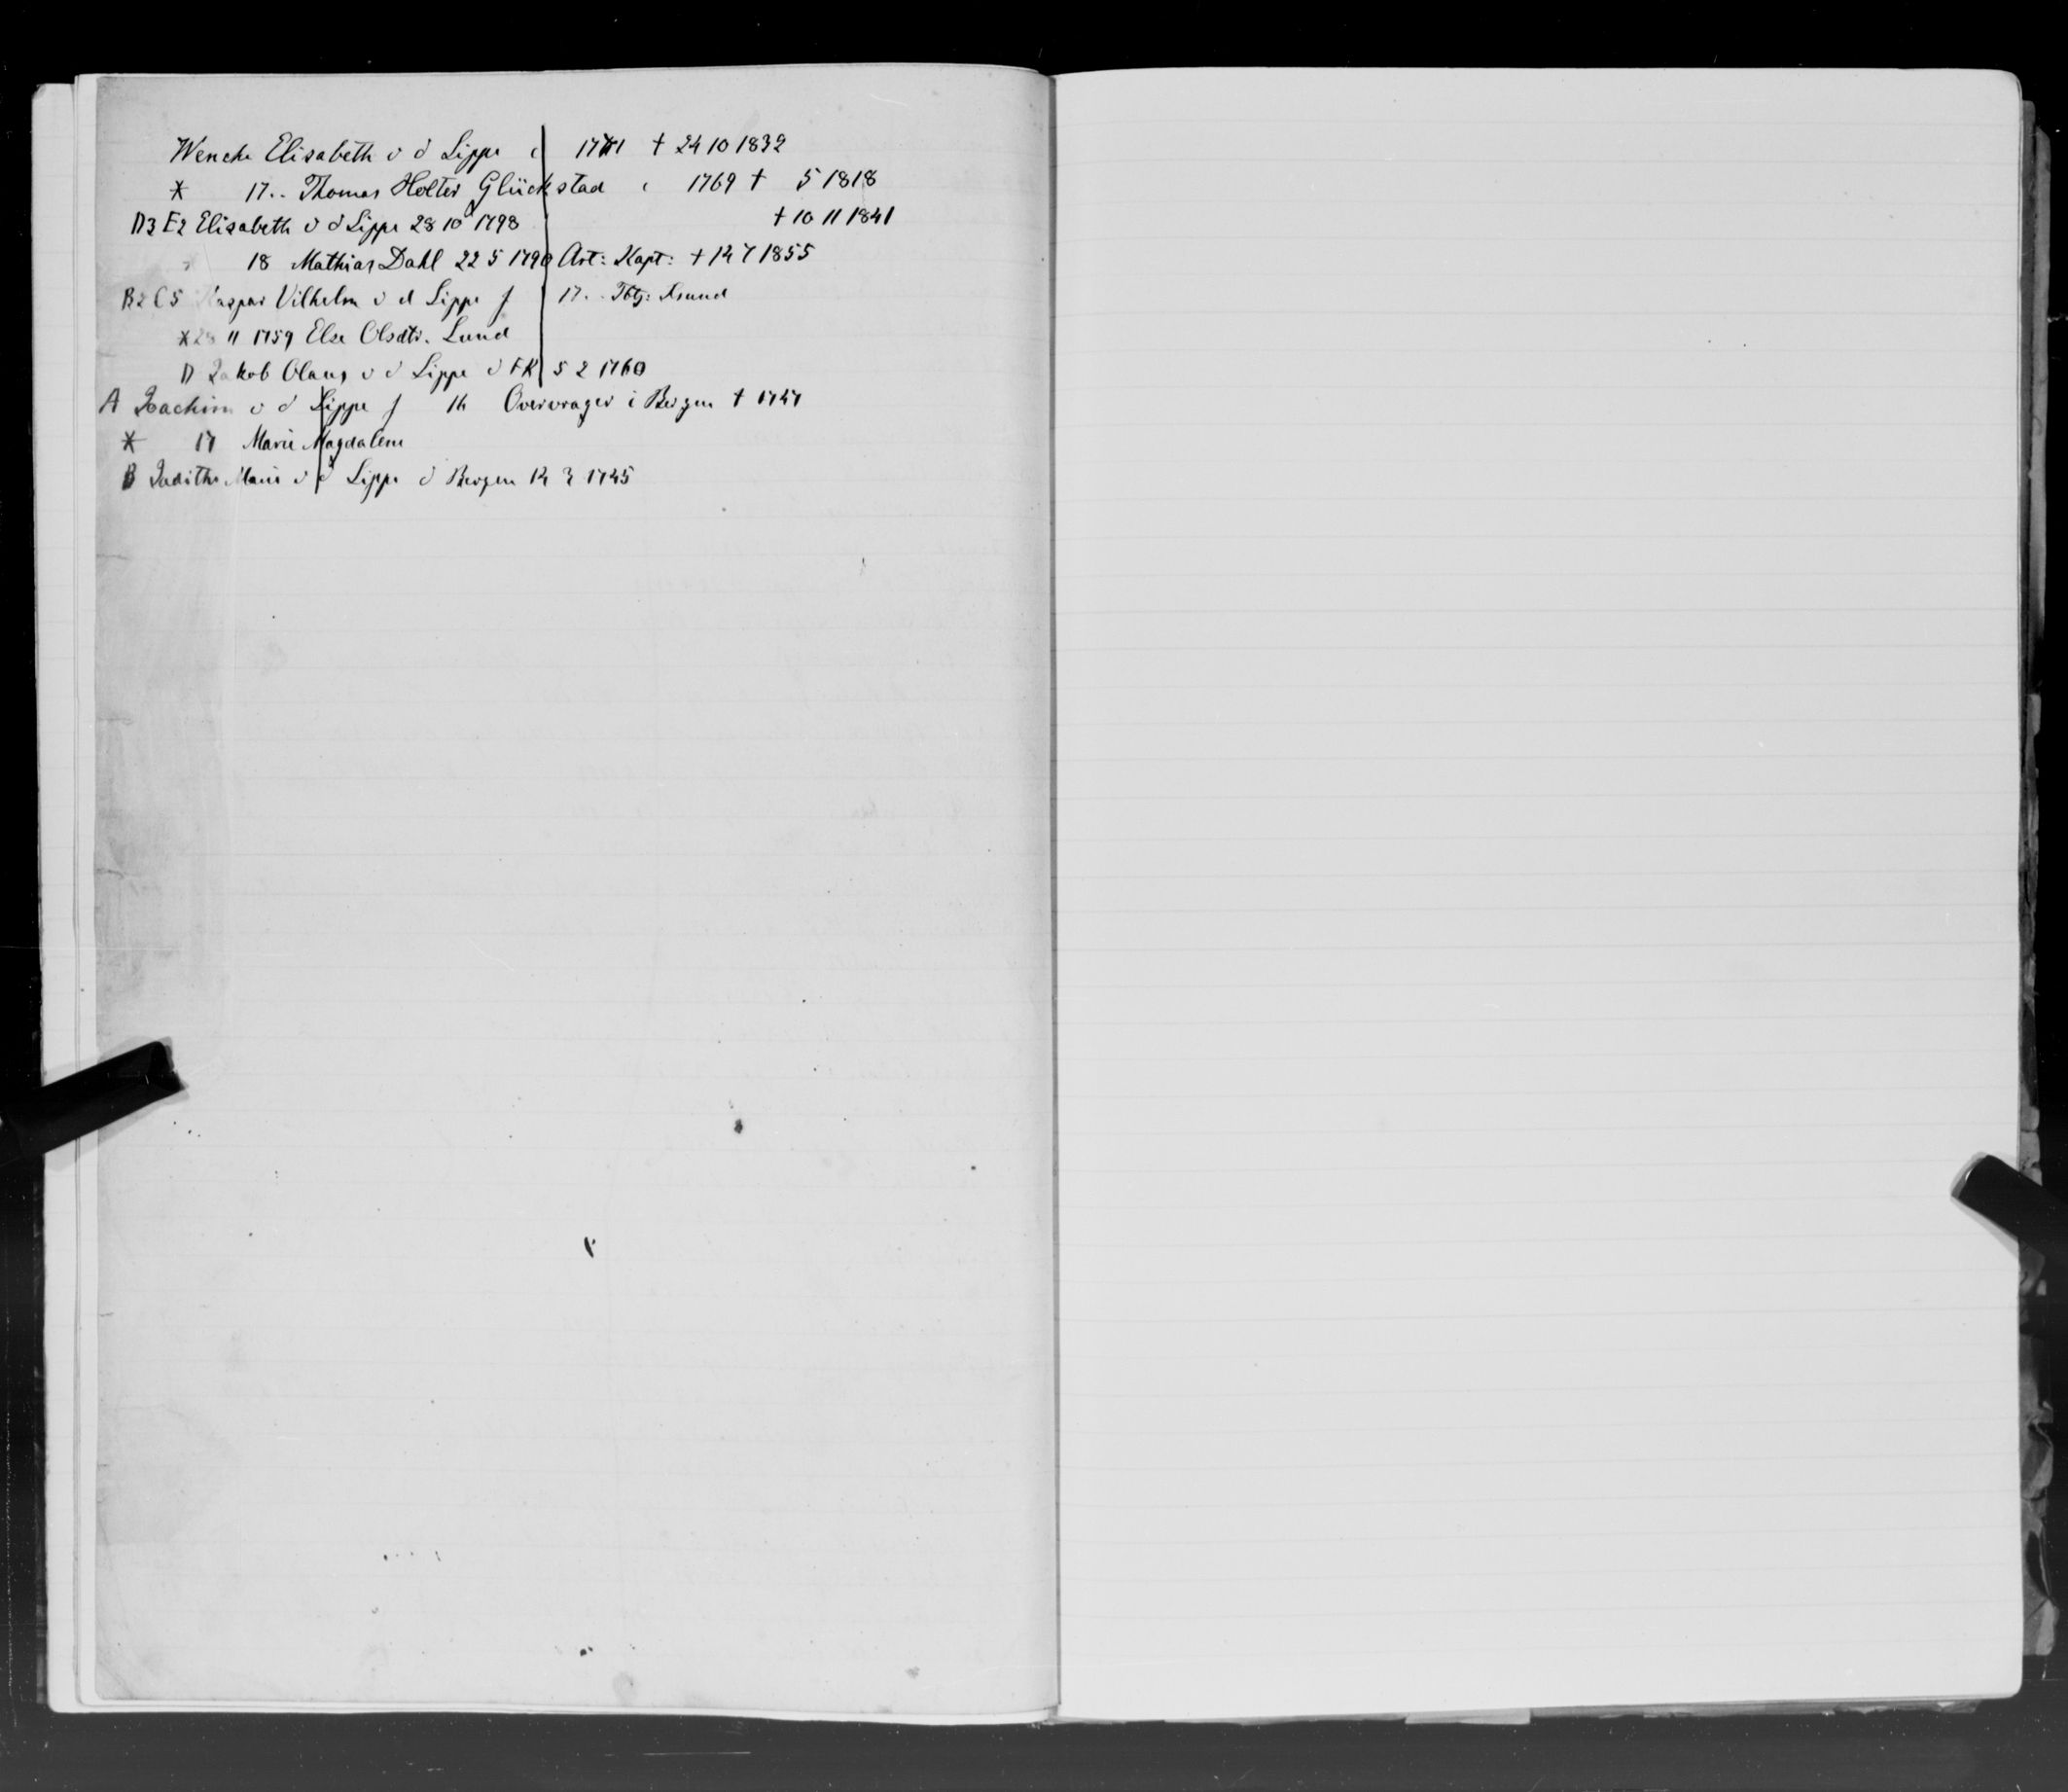 Wenche Elisabeth v d Lippe c 1771 † 24 10 1832
* 17.. Thomas Holter Glückstad c 1769 † 5 1818
D3 E2 Elisabeth v d Lippe 28 10 1798 † 10 11 1841
18 Mathias Dahl 22 5 1790 Art: Kapt: † 14 7 1855
B2 C5 Kaspar Vilhelm v d Lippe f 17..
* 28 11 1759 Else Olsdtr. Lund
D Jakob Claus v d Lippe d FK 5 2 1760
A Joachim v d Lippe f 16 Overvrager i Bergen † 1747
* 17 Marie Magdalene
B Judithe Marie v d Lippe d Bergen 14 3 1745